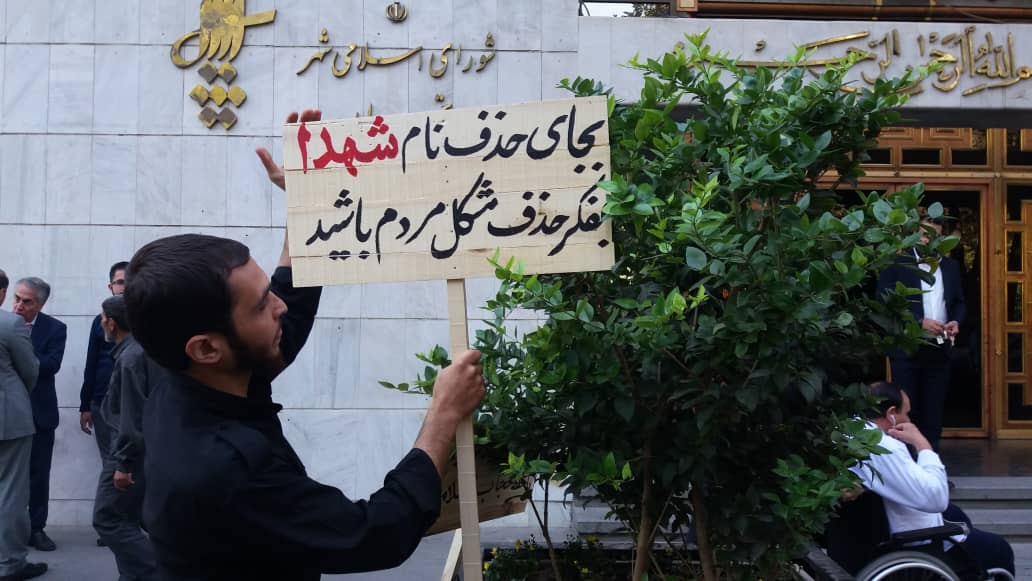 شورای اسلامی شهر
بسم الله الرحمن الرحیم
بجای حذف نام شهدا
بفکر حذف مشکل مردم باشید